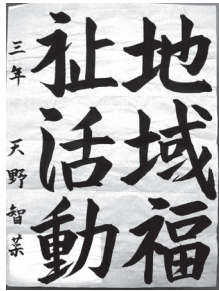 地域福
祉活動
三年 天野智菜